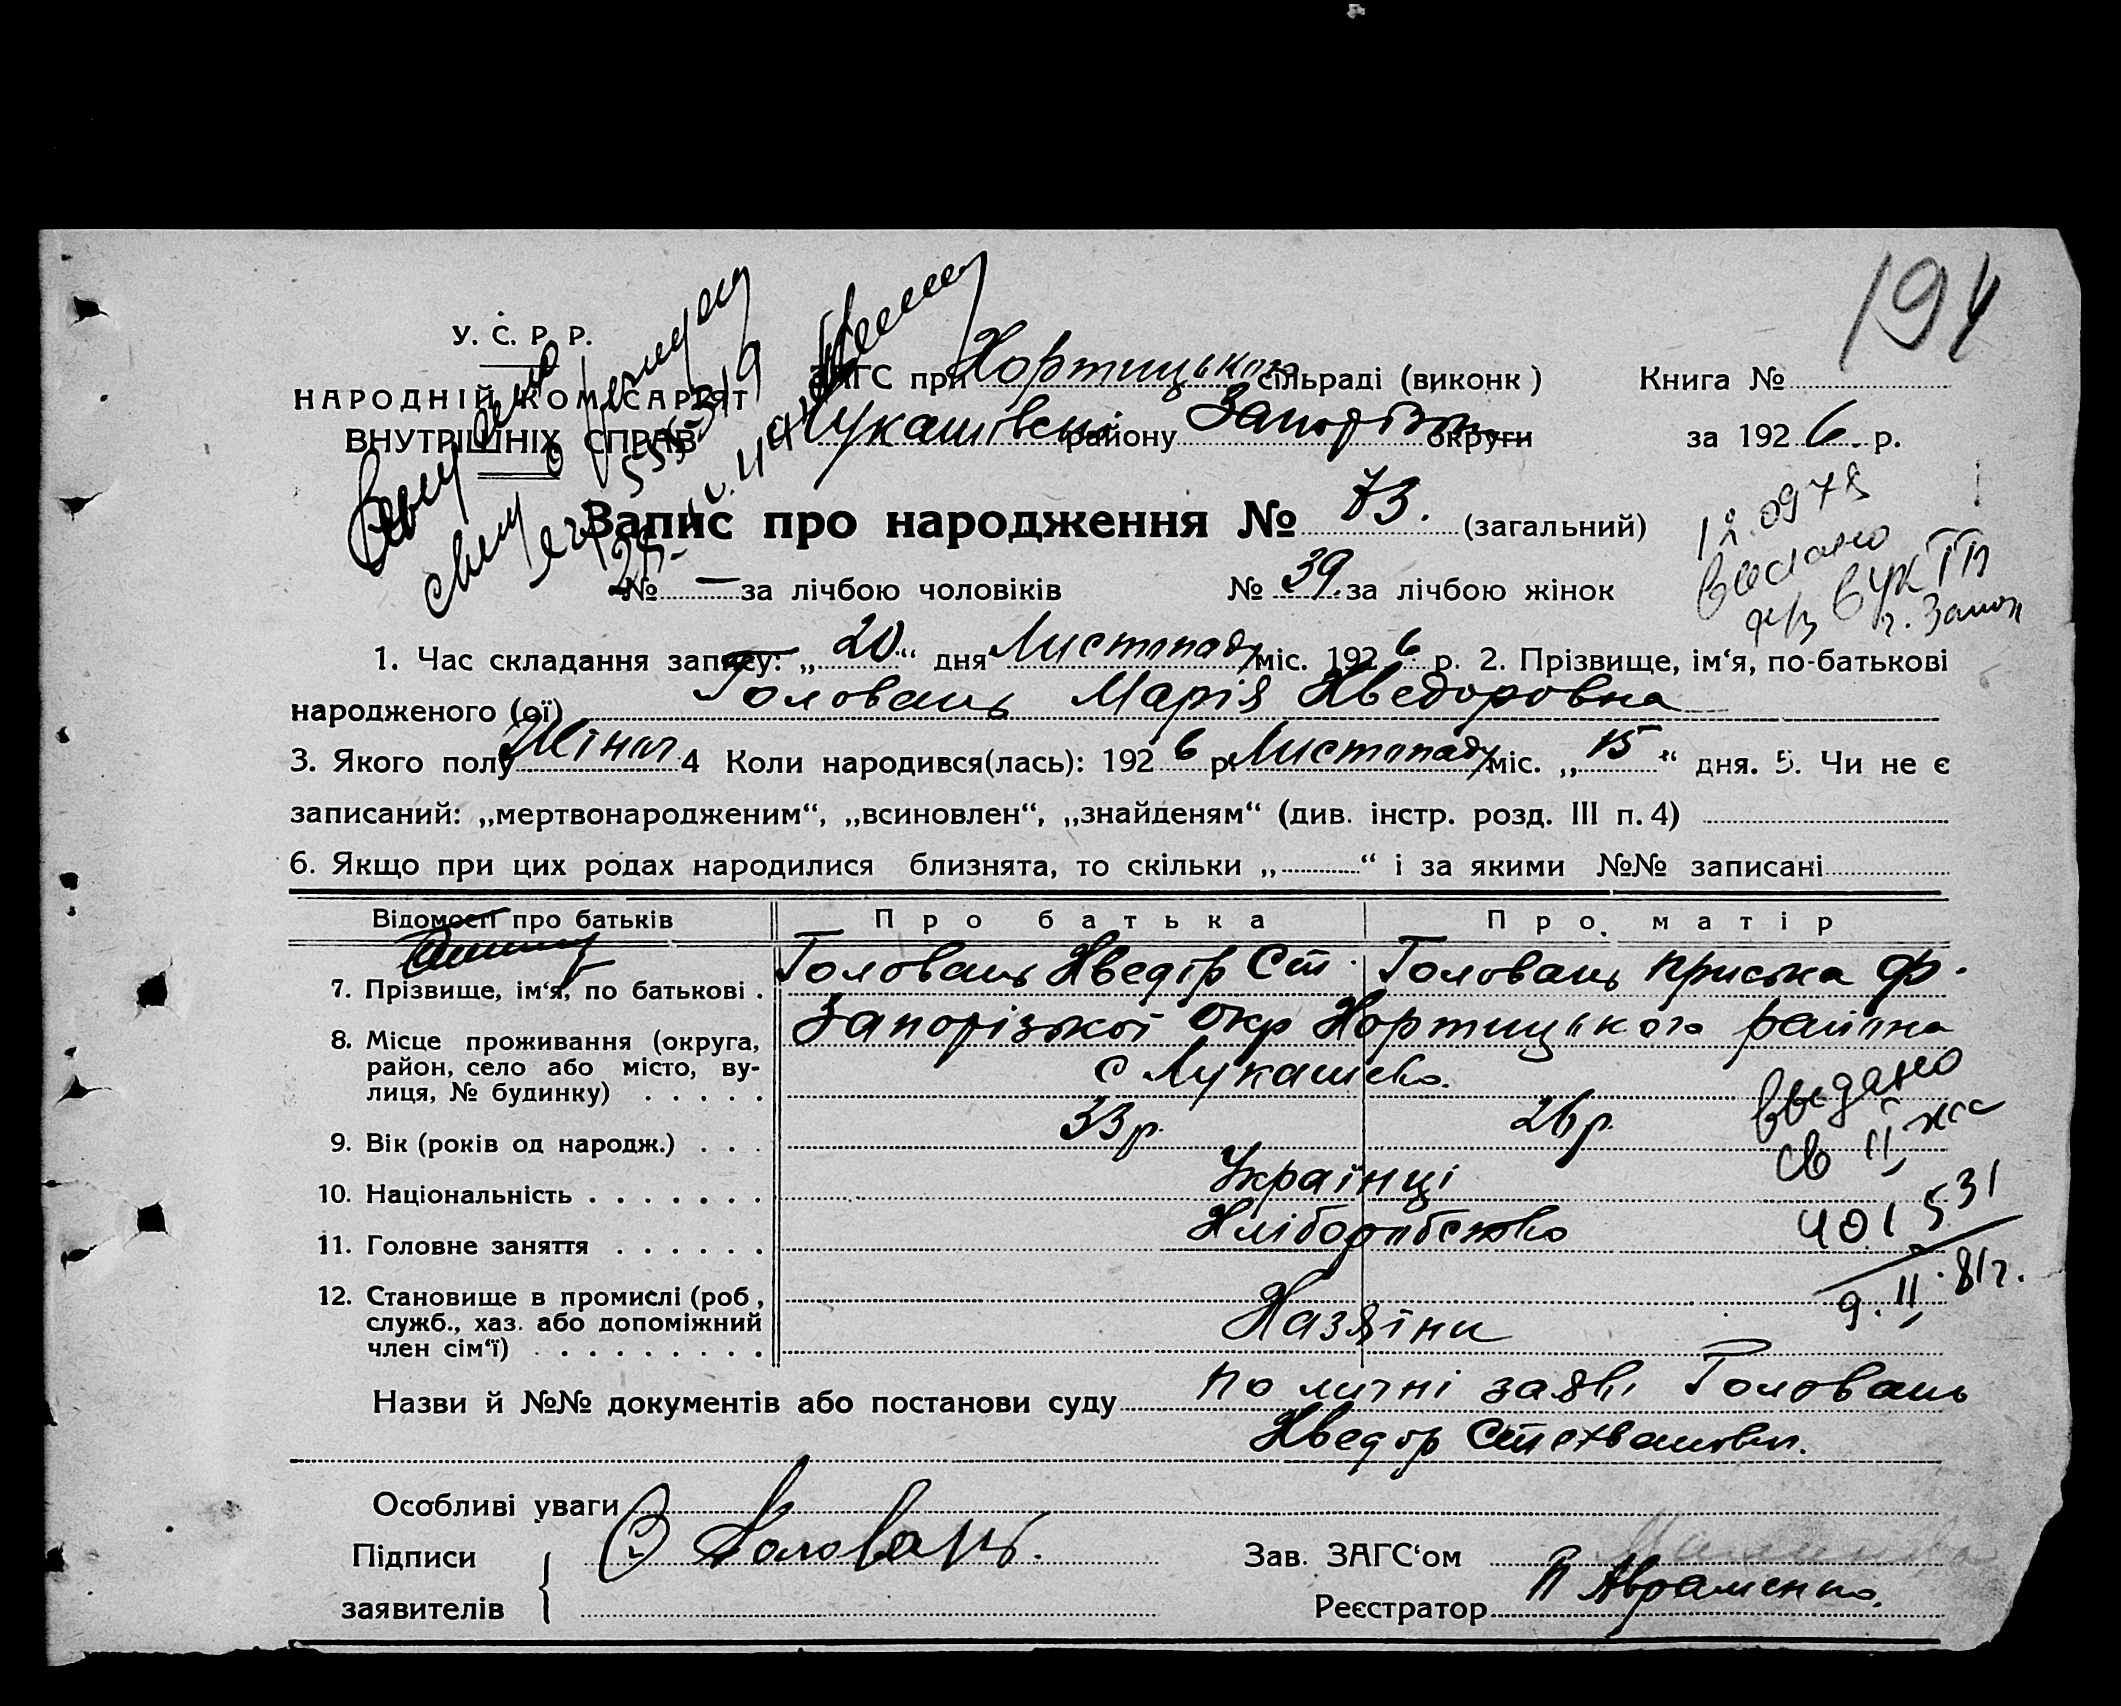 194
У. С. Р. Р.
НАРОДНІЙ КОМІСАРІЯТ
ВНУТРІШНІХ СПРАВ
ЗАГС при Хортицького сільраді (виконк)
Книга №
Лукашівсці району Запорізьк округи
за 1926. р.
Запис про народження № 73. (загальний)
№ — за лічбою чоловіків № 39. за лічбою жінок
12.0978
выдано
г. Запор
1. Час складання запису: „20“ дня Листопаду міс. 1926 р. 2. Прізвище, ім‘я, по-батькові
народженого (ої) Головань Марія Хведоровна
3. Якого полу Жіноч 4 Коли народився(лась): 1926 р. Листопаду міс. „15“ дня. 5. Чи не є
записаний: „мертвонародженим“, „всиновлен“, „знайденям“ (див. інстр. розд. III п. 4)
6. Якщо при цих родах народилися близнята, то скільки „ “ і за якими №№ записані
Відомості про батьків Про батька Про матір
7. Прізвище, ім‘я, по батькові . Головань Хведір Ст. Головань Приська Ф.
8. Місце проживання (округа,
район, село або місто, ву-
лиця, № будинку) . . . . .
Запорізької Окр Хортицького района
с Лукашево.
9. Вік (років од народж.) . . . 33 р. 26 р.
10. Національність . . . . . . . Українці
11. Головне заняття . . . . . . Хліборобство
12. Становище в промислі (роб,
служб., хаз. або допоміжний
член сім‘ї) . . . . . . . . .
Хазяїни
выдано
св II, жс
401531
9.II.81г.
Назви й №№ документів або постанови суду по личні заяві Головань
Хведор Степановы.
Особливі уваги
Підписи
заявителів
Головань.
Зав. ЗАГС‘ом
Реєстратор П Авраменко.